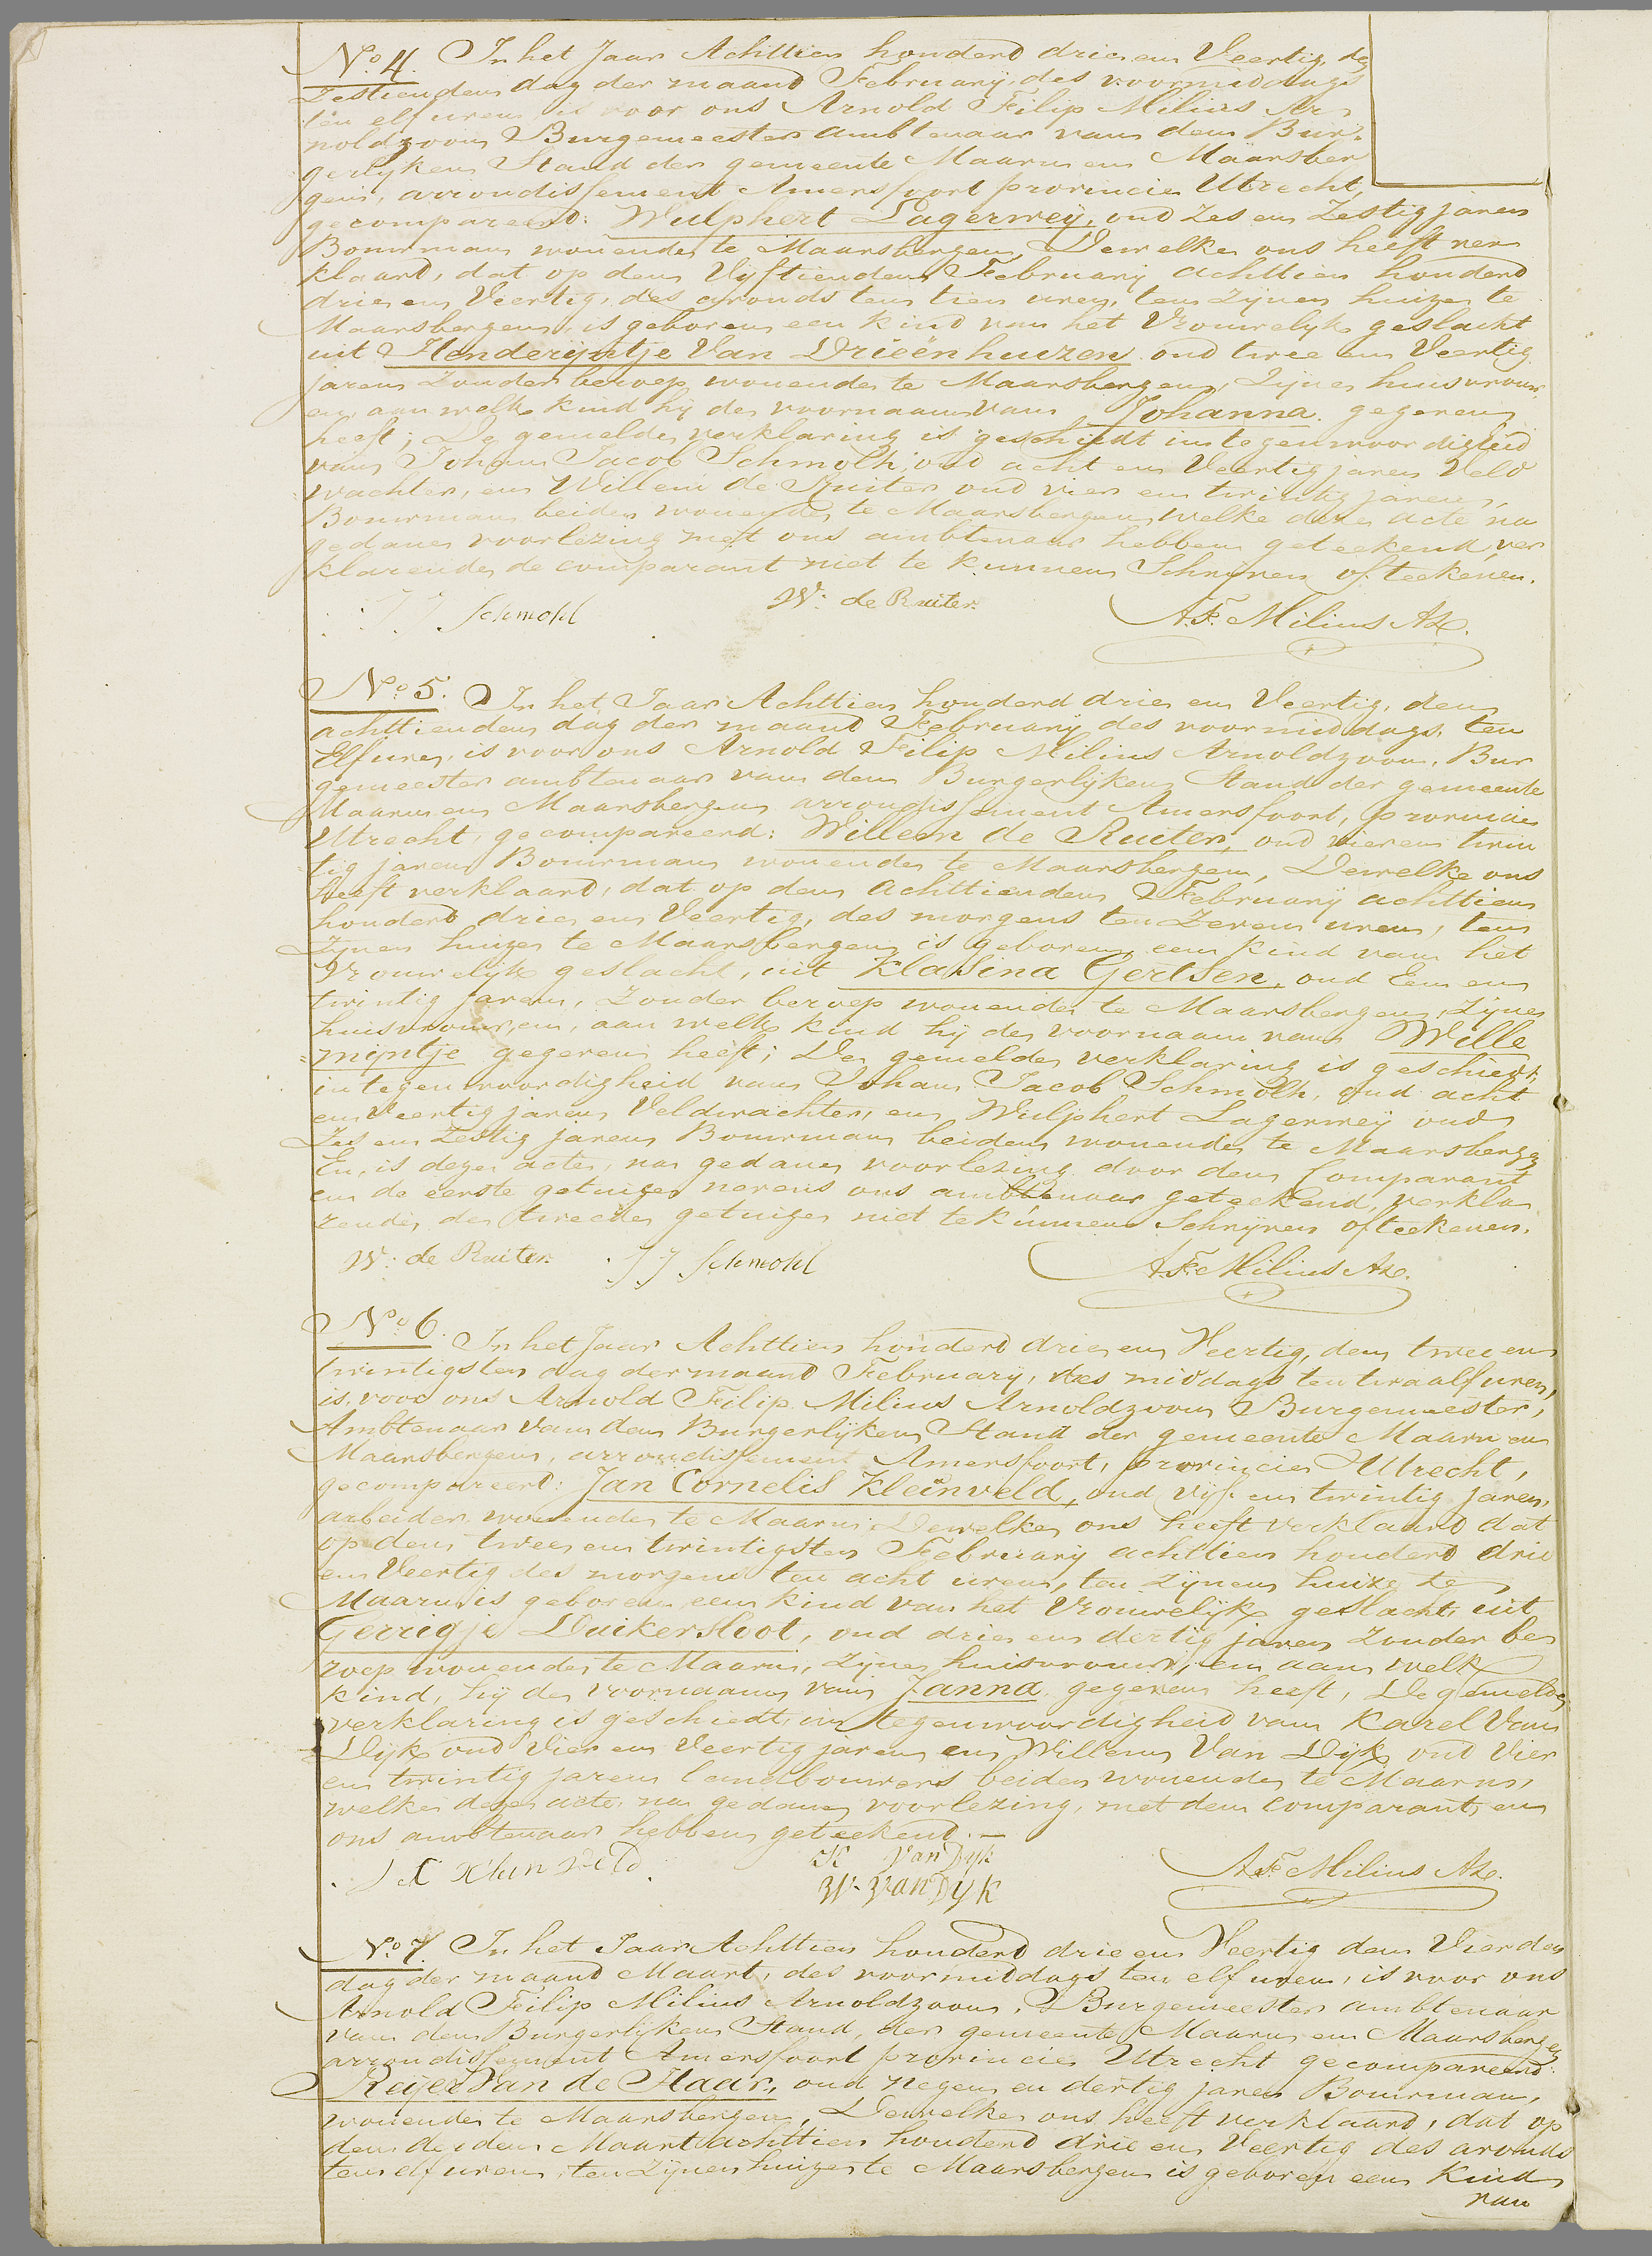 No. 4. In het Jaar Achttien honderd drie en Veertig, de
Zestienden dag der maand February, des voormiddags
ten elf uren is voor ons Arnold Filip Milius Ar
noldzoon Burgemeester ambtenaar van den Bur-
gerlyken Stand der gemeente Maarn en Maarsber
gen, arrondissement Amersfoort provincie Utrecht,
gecompareerd: Wulphert Lagerweij, oud Zes en Zestig jaren
Bouwman wonende te Maarsbergen, Dewelke ons heeft ver
klaard, dat op den Vyftienden February achttien honderd
drie en Veertig, des avonds ten tien uren, ten Zijnen huize te
Maarsbergen, is geboren een kind van het Vrouwelyk geslacht
uit Henderijntje Van Drieënhuizen oud twee en Veertig
jaren Zonder beroep wonende te Maarsbergen, Zijne huisvrouw,
en, aan welk kind hij de voornaam van Johanna gegeven
heeft; De gemelde verklaring is geschiedt in tegenwoordigheid
van Johan Jacob Schmolh, oud acht en Veertig jaren Veld
wachter, en Willem de Ruiter oud vier en twintig jaren,
Bouwman beiden wonende te Maarsbergen welke deze acte na
gedane voorlezing met ons ambtenaar hebben geteekend, ver
klarende de comparant niet te kunnen Schrijven of teekenen.
J J Schmohl W: de Ruiter. A.F. Milius Az.
No. 5. In het Jaar Achttien honderd drie en Veertig, den
achttienden dag der maand February des voormiddags, ten
Elf uren, is voor ons Arnold Filip Milius Arnoldzoon, Bur
gemeester ambtenaar van den Burgerlijken Stand der gemeente
Maarn en Maarsbergen arrondissement Amersfoort, provincie
Utrecht, gecompareerd: Willem de Ruiter, oud vier en twin
tig jaren Bouwman wonende te Maarsbergen, Dewelke ons
heeft verklaard, dat op den achttienden February achttien
honderd drie en Veertig, des morgens ten Zeven uren, ten
Zijnen huize te Maarsbergen is geboren een kind van het
Vrouwelijk geslacht, uit Klasina Gertsen, oud Een en
twintig jaren, Zonder beroep wonende te Maarsbergen, Zijne
huisvrouw, en, aan welk kind hij de voornaam van Wille
=mijntje gegeven heeft; De gemelde verklaring is geschiedt,
in tegenwoordigheid van Johan Jacob Schmolh, oud acht
en Veertig jaren Veldwachter, en Wulphert Lagerweij oud
Zes en Zestig jaren Bouwman beiden wonende te Maarsbergen
En, is deze acte, na gedane voorlezing door den Comparant
en de eerste getuige nevens ons ambtenaar geteekend, verkla
rende, de tweede getuige niet te kunnen Schrijven of teekenen.
W: de Ruiter. J J Schmohl A.F. Milius Az.
No. 6. In het Jaar Achttien honderd drie en Veertig, den twee en
twintigsten dag der maand February, des middags ten twaalf uren,
is voor ons Arnold Filip Milius Arnoldzoon Burgemeester,
Ambtenaar van den Burgerlijken Stand der gemeente Maarn en
Maarsbergen, arrondissement Amersfoort, provincie Utrecht,
gecompareerd: Jan Cornelis Kleinveld, oud vijf en twintig jaren,
arbeider wonende te Maarn, Dewelke ons heeft verklaard dat
op den twee en twintigsten February achttien honderd drie
en Veertig des morgens ten acht uren, ten Zijnen huize te
Maarn is geboren een kind van het Vrouwelijk geslacht, uit
Gerrigje Duikersloot, oud drie en dertig jaren Zonder be
roep wonende te Maarn, Zijne huisvrouw, en aan welk
kind, hij de voornaam van Janna gegeven heeft, De gemelde
verklaring is geschiedt, in tegenwoordigheid van Karel Van
Dijk oud Vier en Veertig jaren en Willem Van Dijk oud Vier
en twintig jaren landbouwers beiden wonende te Maarn,
welke deze acte, na gedane voorlezing, met den comparant, en
ons ambtenaar hebben geteekend. —
J C Klein veld K Van Dijk A.F. Milius Az.
W. Van Dyk
No. 7. In het Jaar Achttien honderd drie en Veertig den Vierden
dag der maand Maart, des voormiddags ten elf uren, is voor ons
Arnold Filip Milius Arnoldzoon, Burgemeester ambtenaar
van den Burgerlijken Stand, der gemeente Maarn en Maarsbergen
arrondissement Amersfoort provincie Utrecht gecompareerd:
Reijer Van de Haar, oud negen en dertig jaren Bouwman,
wonende te Maarsbergen, Dewelke ons heeft verklaard, dat op
den derden Maart achttien honderd drie en Veertig des avonds
ten elf uren, ten Zijnen huize te Maarsbergen is geboren een Kind
van